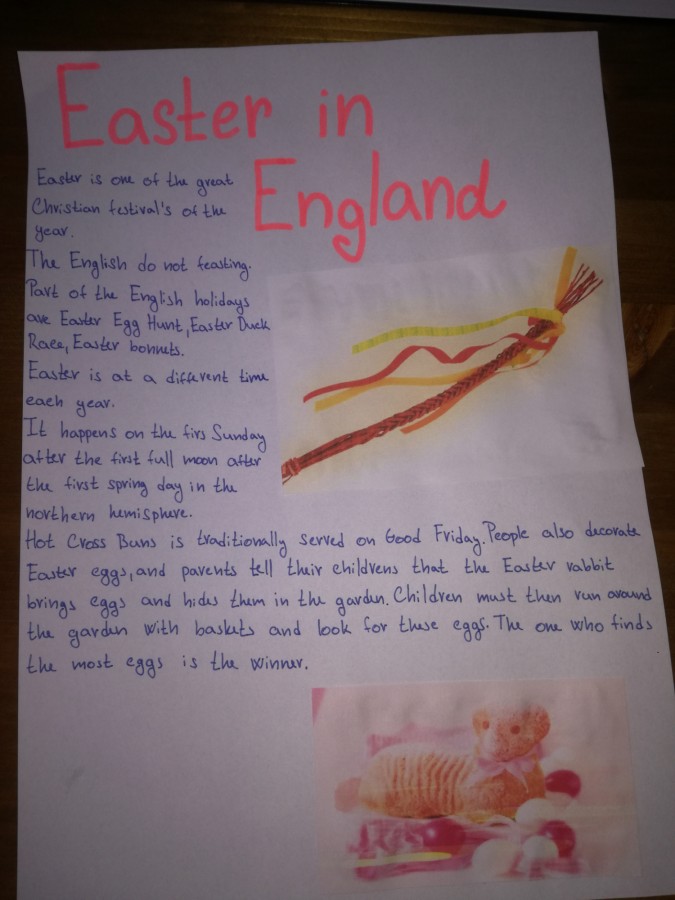 Easter in
England
Easter is one of the great
Christian festival's of the
year.
The English do not feasting.
Part of the English holidays
are Easter Egg Hunt, Easter Duck
Race, Easter bonnets.
Easter is at a different time
each year.
It happens on the firs Sunday
after the first full moon after
the first spring day in the
northern hemisphere.
Hot Cross Buns is traditionally served on Good Friday. People also decorate
Easter eggs, and parents tell their childrens that the Easter rabbit
brings eggs and hides them in the garden. Children must then run around
the garden with baskets and look for these eggs. The one who finds
the most eggs is the winner.